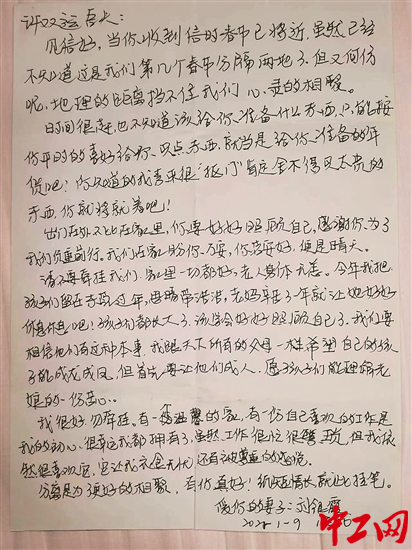 许双运吾夫：
见信好，当你收到信时春节已将近，虽然已经
不知道这是我们第几个春节分隔两地了，但又何仿
呢，地理的距离挡不住我们心灵的相聚。
时间很赶，也不知道该给你准备什么东西，只能按
你平时的喜好给你买点东西，就当是给你准备的年
货吧！你知道的我喜来很"抠门"肯定舍不得买太贵的
东西，你就将就着吧！
出门在外不比在家里，你要好好照顾自己，感谢你为了
我们负重前行。我们在家盼你平安，你若安好，便是晴天。
请不要牵挂我们，家里一切都好，老人身体无恙。今年我把
孩子们留在手敌过年，思瑞带浩浩，老妈辛苦了一年就让她好好
休息休息吧！孩子们都长大了，该学会好好照顾自己了，我们要
相信他们有这种本事，我跟天下所有的父母一样希望自己的孩
子能成龙成凤，但首先要让他们成人，愿孩子们能理解老
娘的一份苦心。
我很好，勿牵挂。有一份温馨的家，有一份自己喜欢的工作是
我的初心，但幸运我都拥有了，虽然工作很忙很繁琐，但我依
然很喜欢它，它让我衣食无忧，还有被尊重的感觉。
分离是为了更好的相聚，有你真好！纸短情长，就此搁笔。
爱你的妻子：刘银霞
2022 1-9
中工网